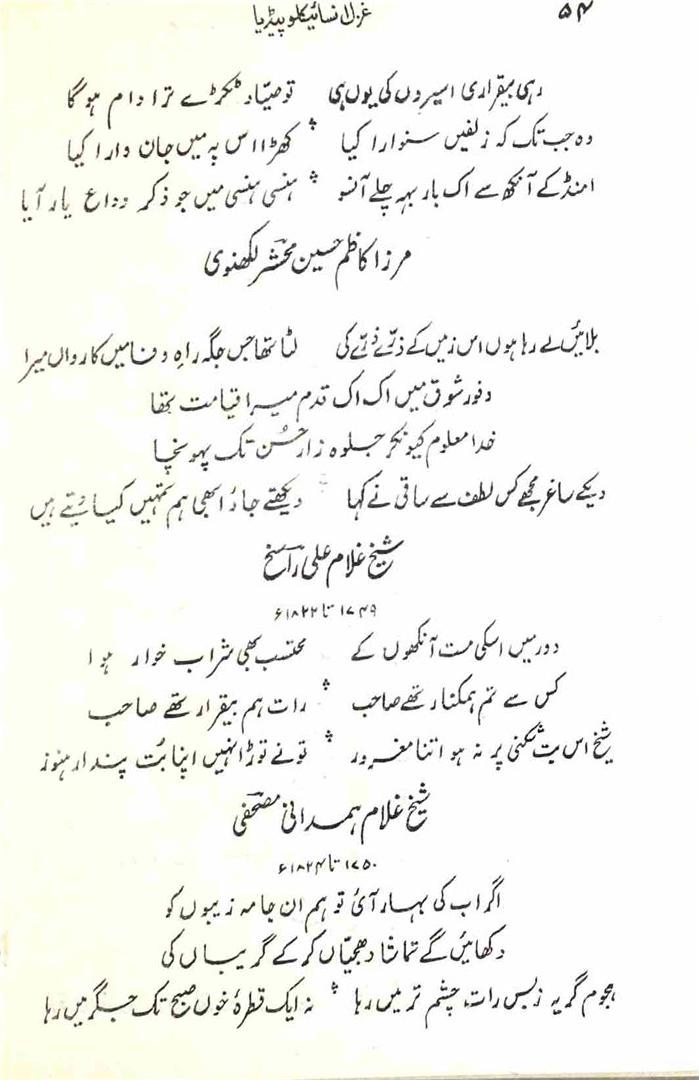 ۵۴ غزل انسائیکلوپیڈیا
رہی بیقراری اسیروں کی یوں ہی تو صیّاد ٹکڑے ترا دام ہو گا
وہ جب تک کہ زلفیں سنوارا کیا کھڑا اس پہ میں جان وارا کیا
امنڈ کے آنکھ سے اک بار بہہ چلے آنسو ہنسی ہنسی میں جو ذکر وداع یار آیا
مرزا کاظم حسین محشر لکھنوی
بلائیں لے رہا ہوں اس زمیں کے ذرّے ذرّے کی لٹا تھا جس جگہ راہِ وفا میں کارواں میرا
وفور شوق میں اک اک قدم میرا قیامت تھا
خدا معلوم کیونکر جلوہ زار حسن تک پہونچا
دیکے ساغر مجھے کس لطف سے ساقی نے کہا دیکھتے جاؤ ابھی ہم تمہیں کیا دیتے ہیں
شیخ غلام علی راسخ
۱۷۴۹ تا ۱۸۲۲ء
دور میں اسکی مست آنکھوں کے محتسب بھی شراب خوار ہوا
کس سے تم ہمکنار تھے صاحب رات ہم بیقرار تھے صاحب
شیخ اس بت شکنی پر نہ ہو اتنا مغرور تو نے توڑا نہیں اپنا بُت پندار ہنوز
شیخ غلام ہمدانی مصحفی
۱۷۵۰ تا ۱۸۲۴ء
اگر اب کی بہار آئی تو ہم ان جامہ زیبوں کو
دکھائیں گے تماشا دھجیّاں کر کے گریباں کی
ہجوم گریہ زبس رات چشم تر میں رہا نہ ایک قطرۂ خوں صبح تک جگر میں رہا